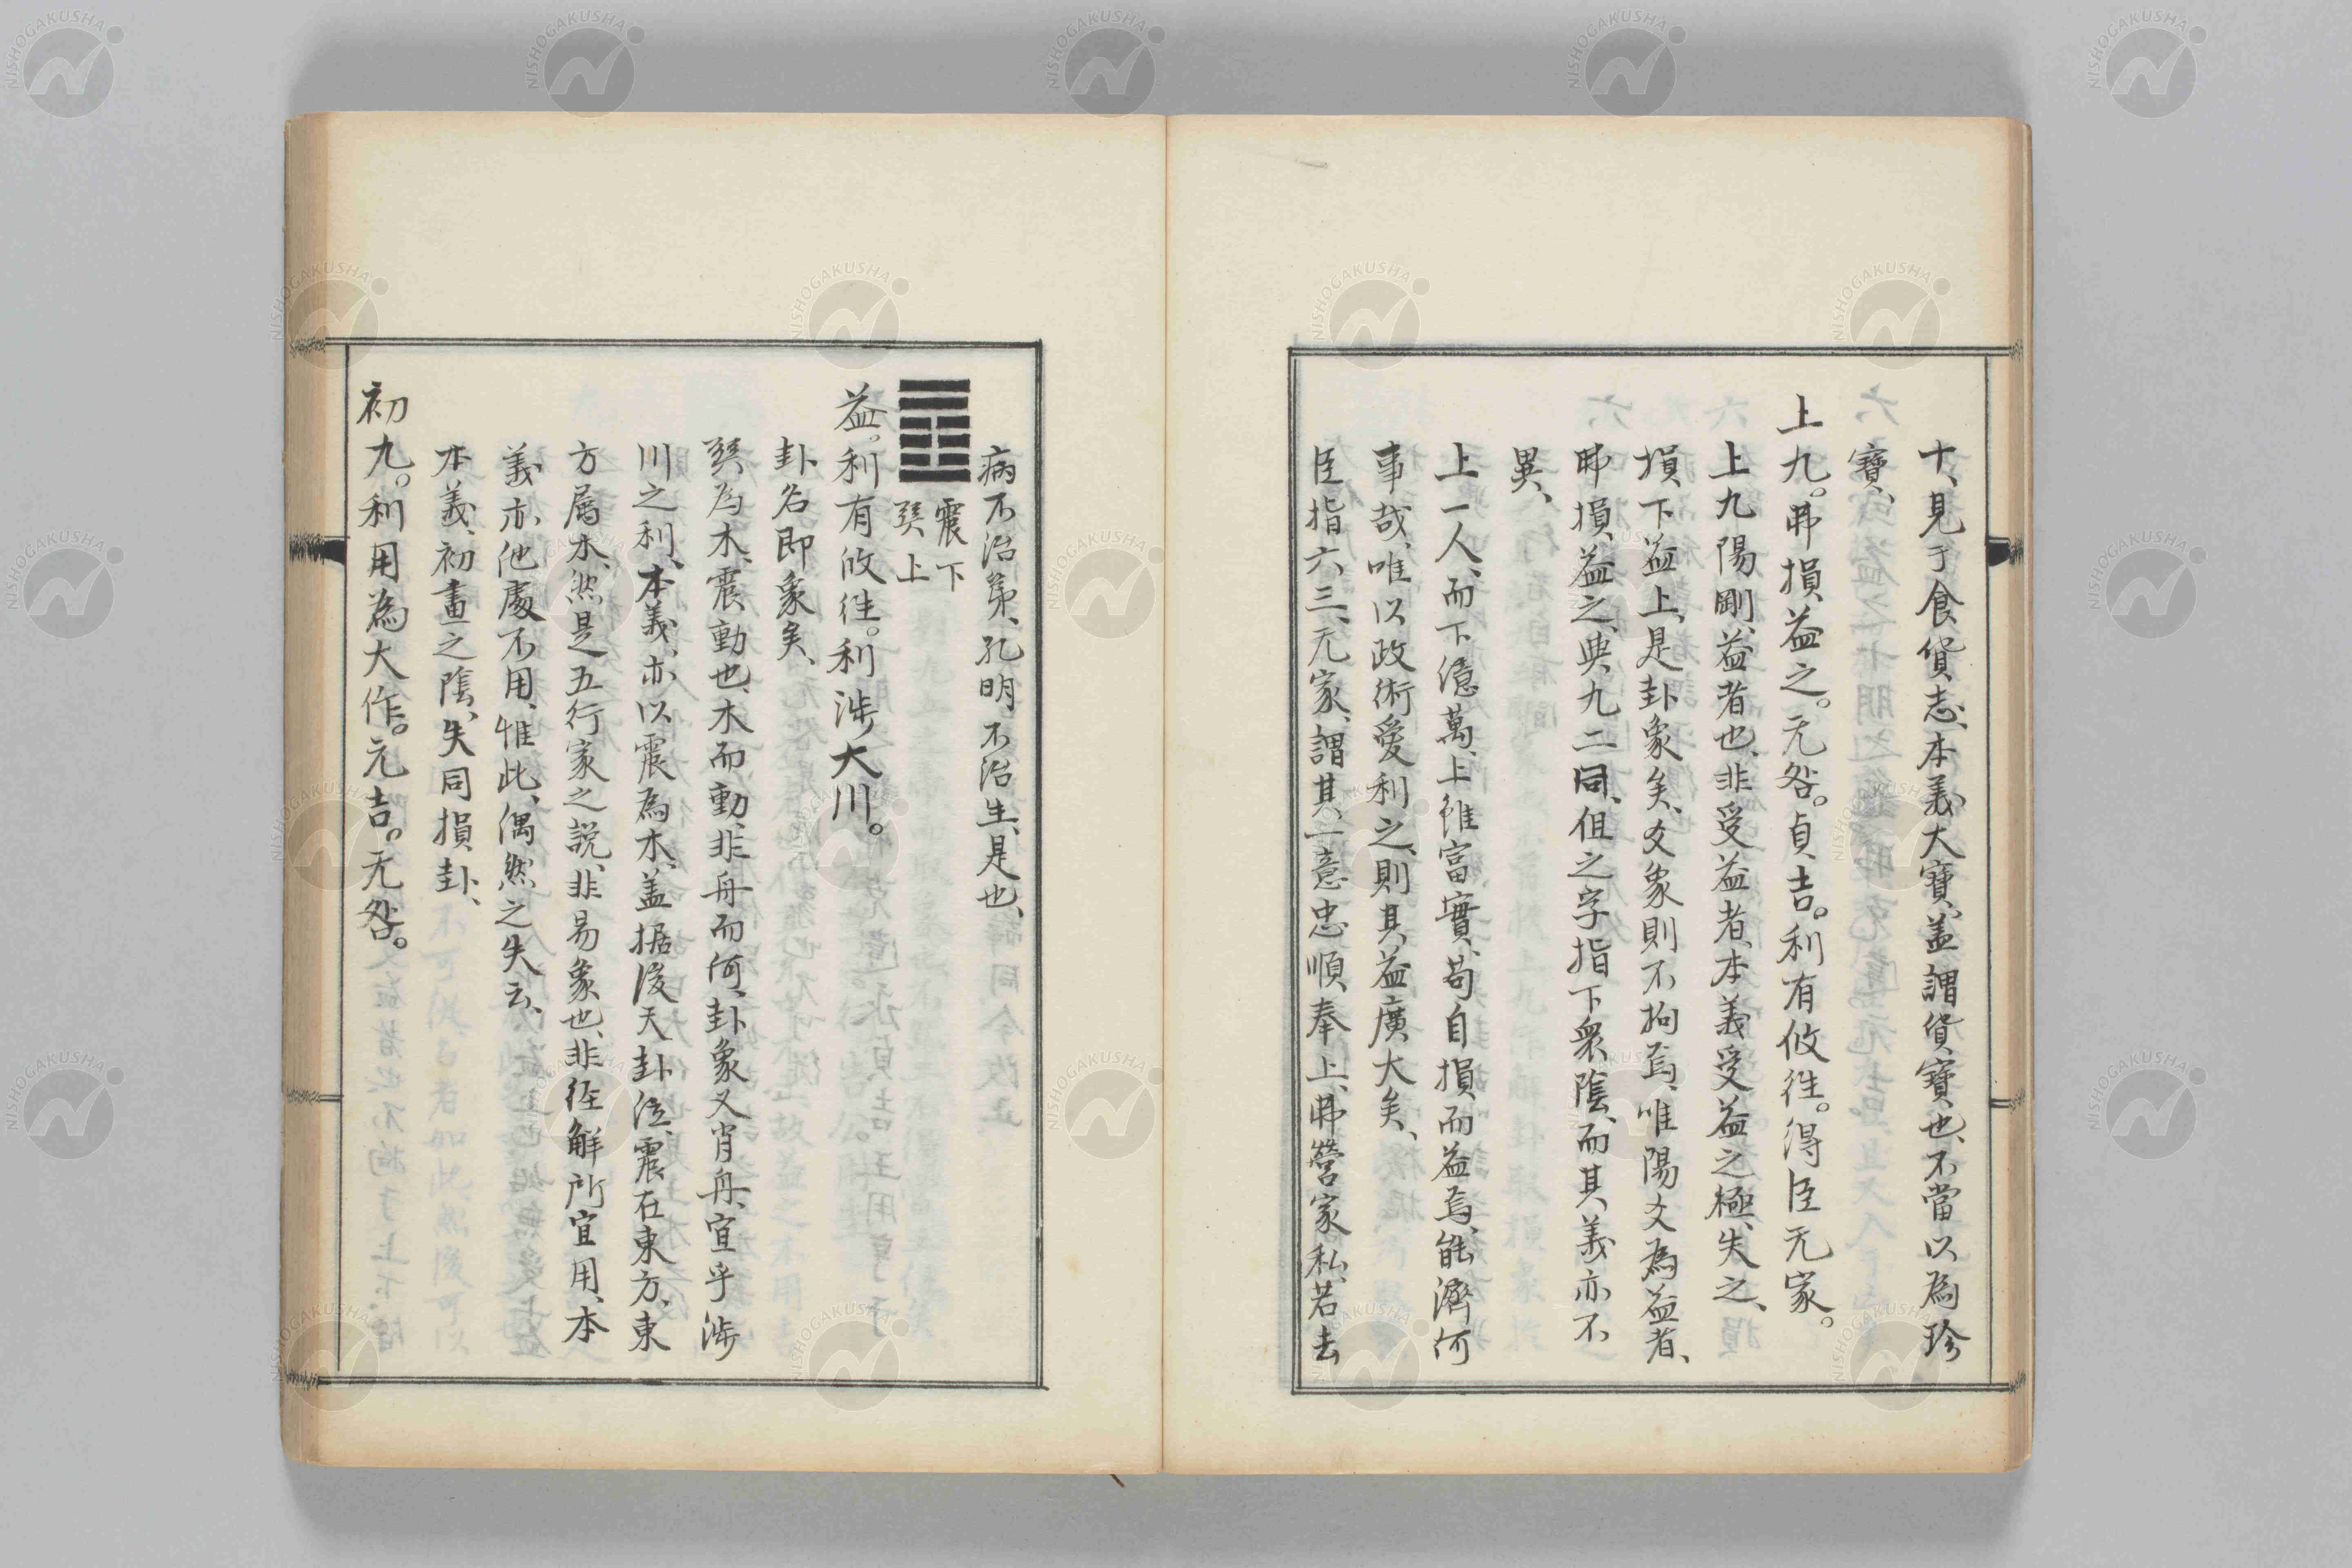 十、見于食貨志、本義大寶、蓋謂貨寶也、不當以為珍
寶、
上九。弗損益之。无咎。貞吉。利有攸往。得臣无家。
上九陽剛、益者也、非受益者、本義受益之極、失之、
損下益上、是卦象矣、爻象則不拘焉、唯陽爻為益者、
弗損、益之、與九二同、但之字指下衆陰、而其義亦不
異、
上一人、而下億萬、上雖富實、苟自損而益焉、能濟何
事哉、唯以政術愛利之、則其益廣大矣、
臣指六三、无家、謂其一意忠順奉上、弗營家私、若去
病不治第、孔明不治生、是也、
震下
巽上
益。利有攸往。利涉大川。
卦名即象矣、
巽為木、震動也、木而動、非舟而何、卦象又肖舟、宜乎涉
川之利、本義、亦以震為木、蓋据後天卦位、震在東方、東
方屬木、然是五行家之說、非易象也、非経解所宜用、本
義亦他處不用、惟此、偶然之失云、
本義、初畫之陰、失同損卦、
初九。利用為大作。元吉。无咎。
NISHOGAKUSHA